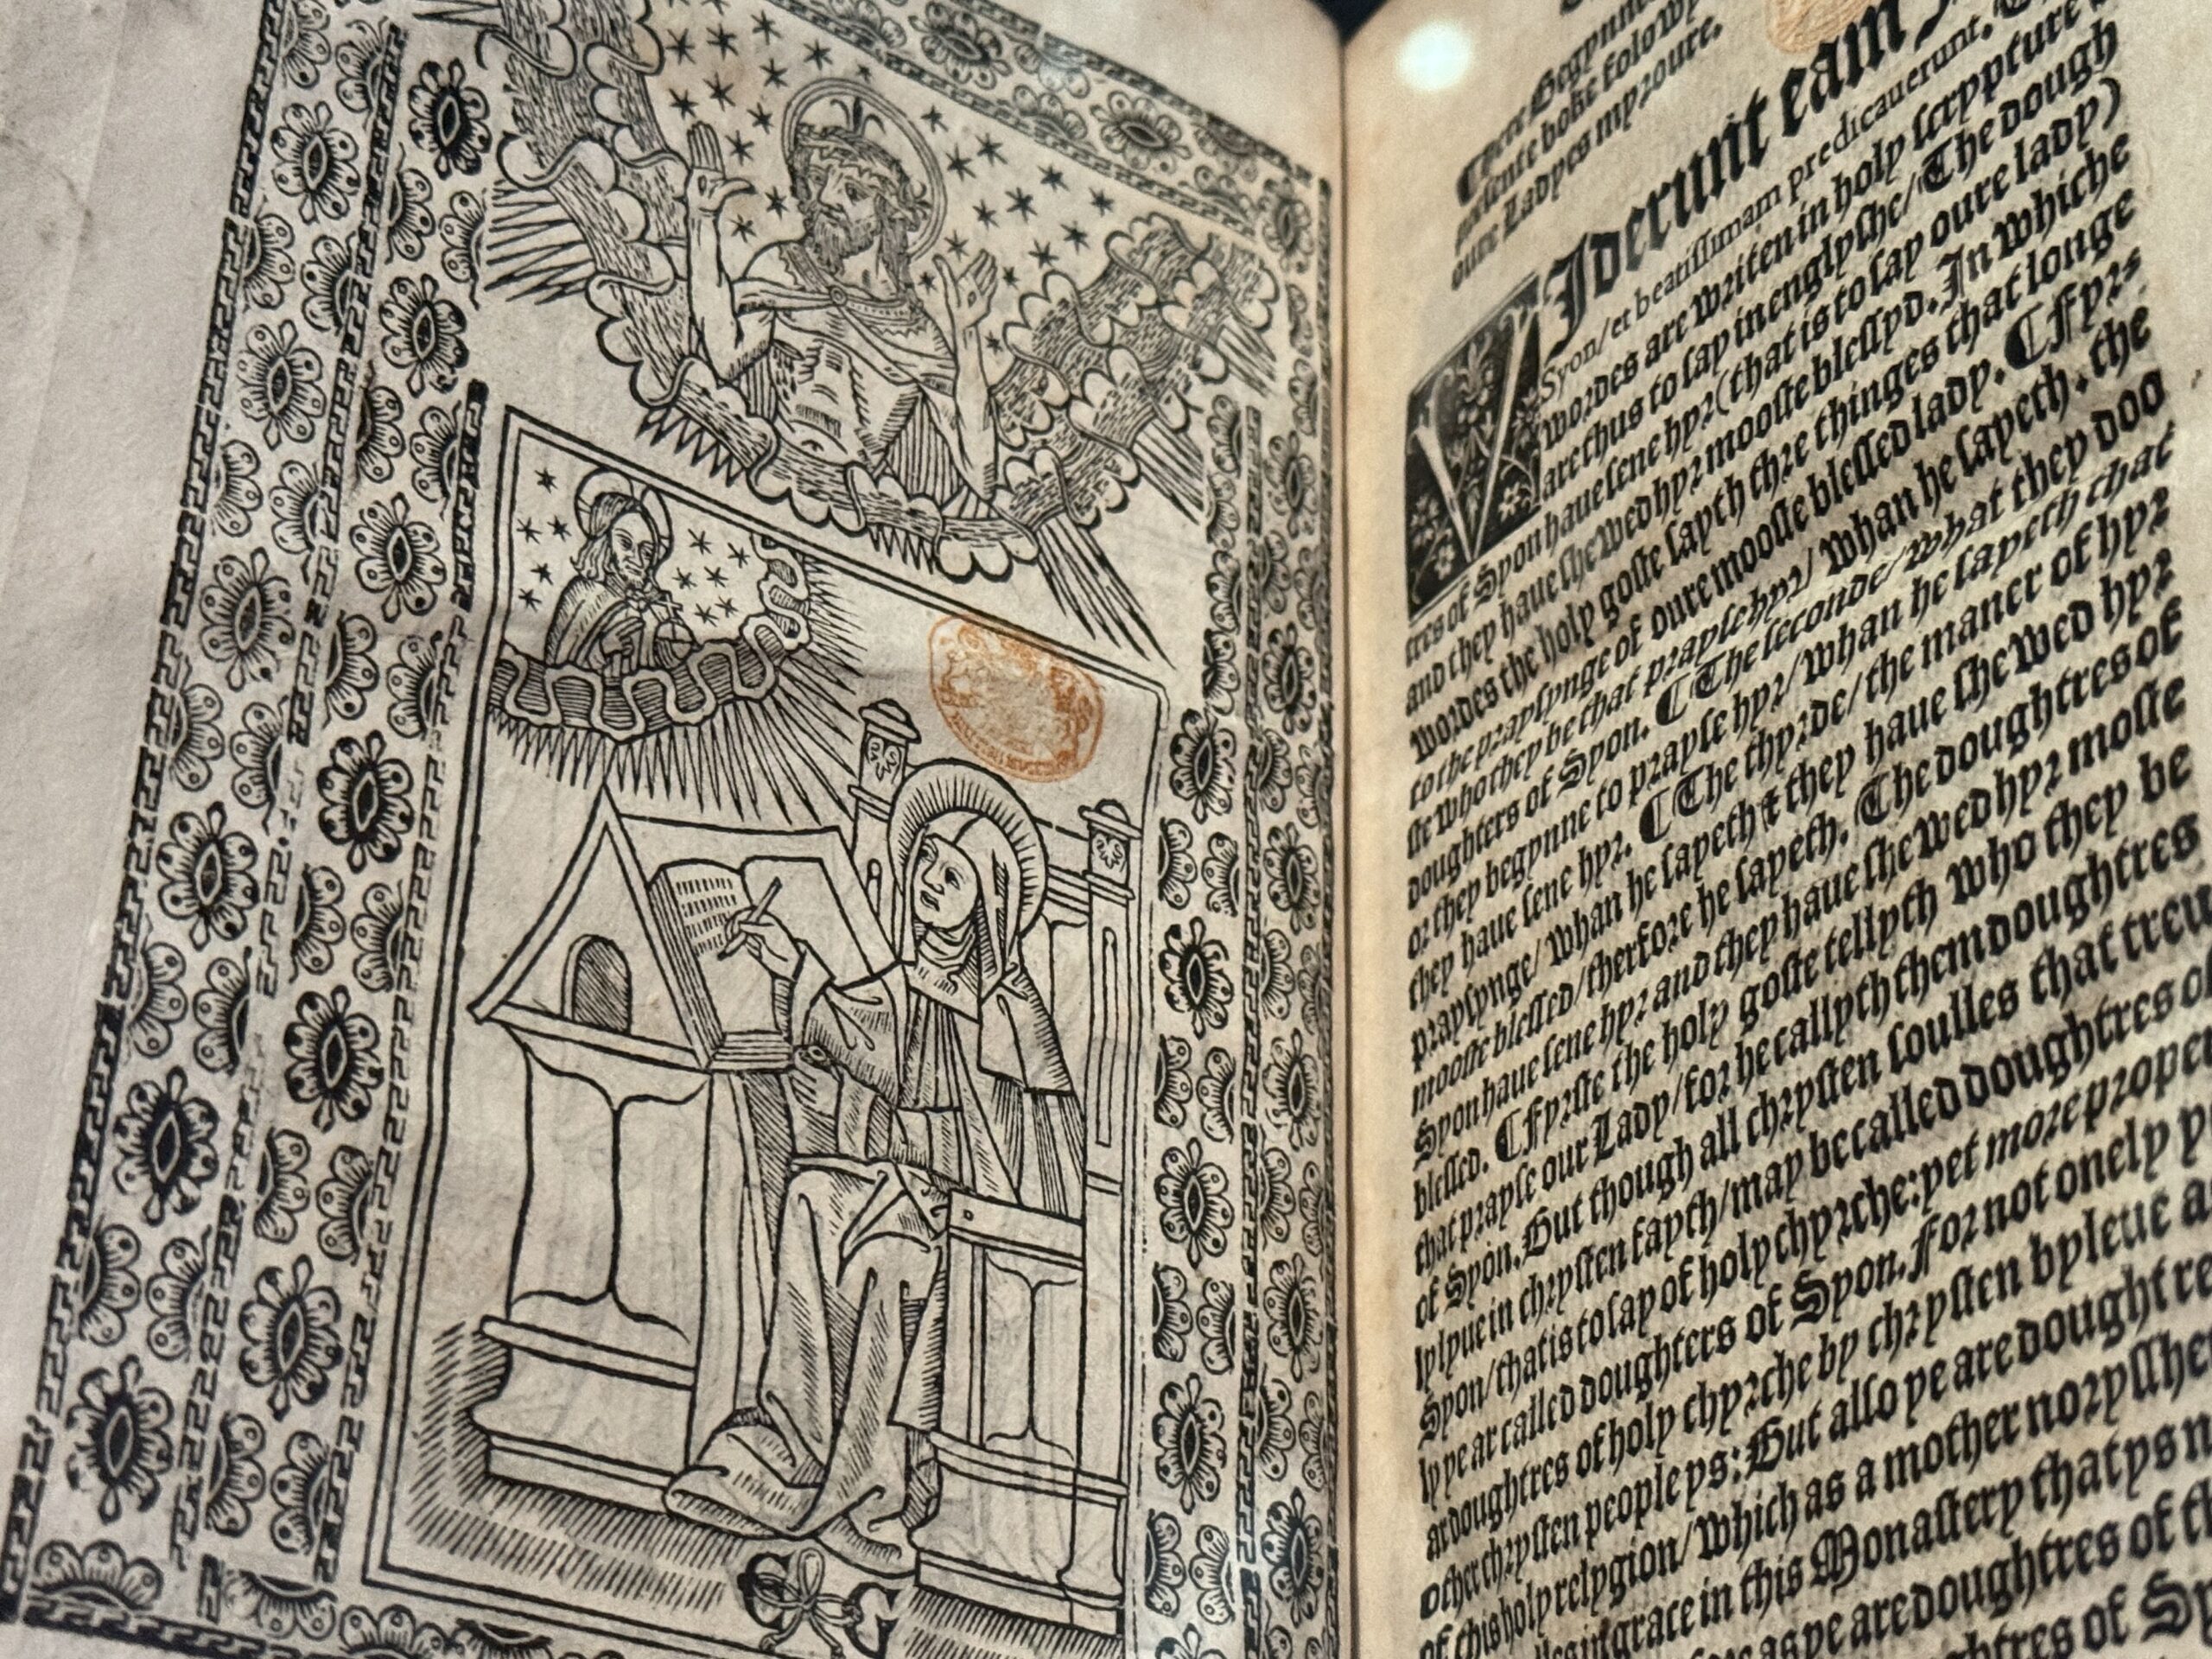 Here Begynne
presente boke folowy
oure Ladyes myroure.
VIderunt eam
Syon/ et beatissimam predicauerunt.
wordes are writen in holy scrypture
are thus to say in englysshe/ The dough
tres of Syon haue sene hyr (that is to say oure lady)
and they haue shewed hyr mooste blessyd. In whiche
wordes the holy goste sayth thre thinges that longe
to the praysynge of oure mooste blessed lady. ¶ Fyrs
te who they be that prayse hyr/ whan he sayeth. the
doughters of Syon. ¶ The seconde/ what they doo
or they begynne to prayse hyr/ whan he sayeth that
they haue sene hyr. ¶ The thyrde/ the maner of hyr
praysynge/ whan he sayeth & they haue shewed hyr
mooste blessed/ therfore he sayeth. The doughtres of
Syon haue sene hyr and they haue shewed hyr moste
blessed. ¶ Fyrste the holy goste tellyth who they be
that prayse our Lady/ for he callyth them doughtres
of Syon. But though all chrysten soulles that treu
ly lyue in chrysten fayth/ may be called doughtres of
Syon/ that is to say of holy chyrche: yet more proper
ly ye ar called doughters of Syon. For not onely y
ar doughtres of holy chyrche by chrysten byleue a
other chrysten people ys: But also ye are doughtre
of this holy relygion/ which as a mother norysshe
grace in this Monastery that ys n
as ye are doughtres of th
ghtres of Sy